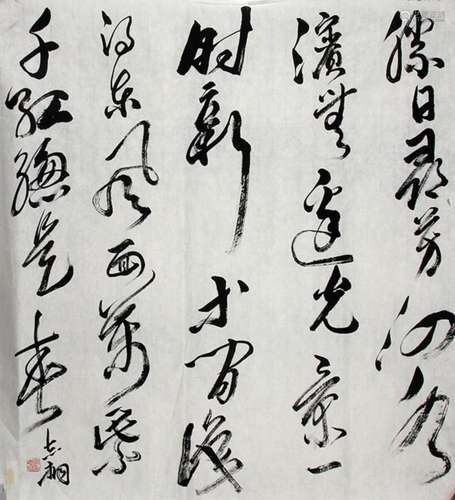 勝日尋芳泗水
濱無邊光景一
时新等閒識
得東風面萬紫
千紅總是春